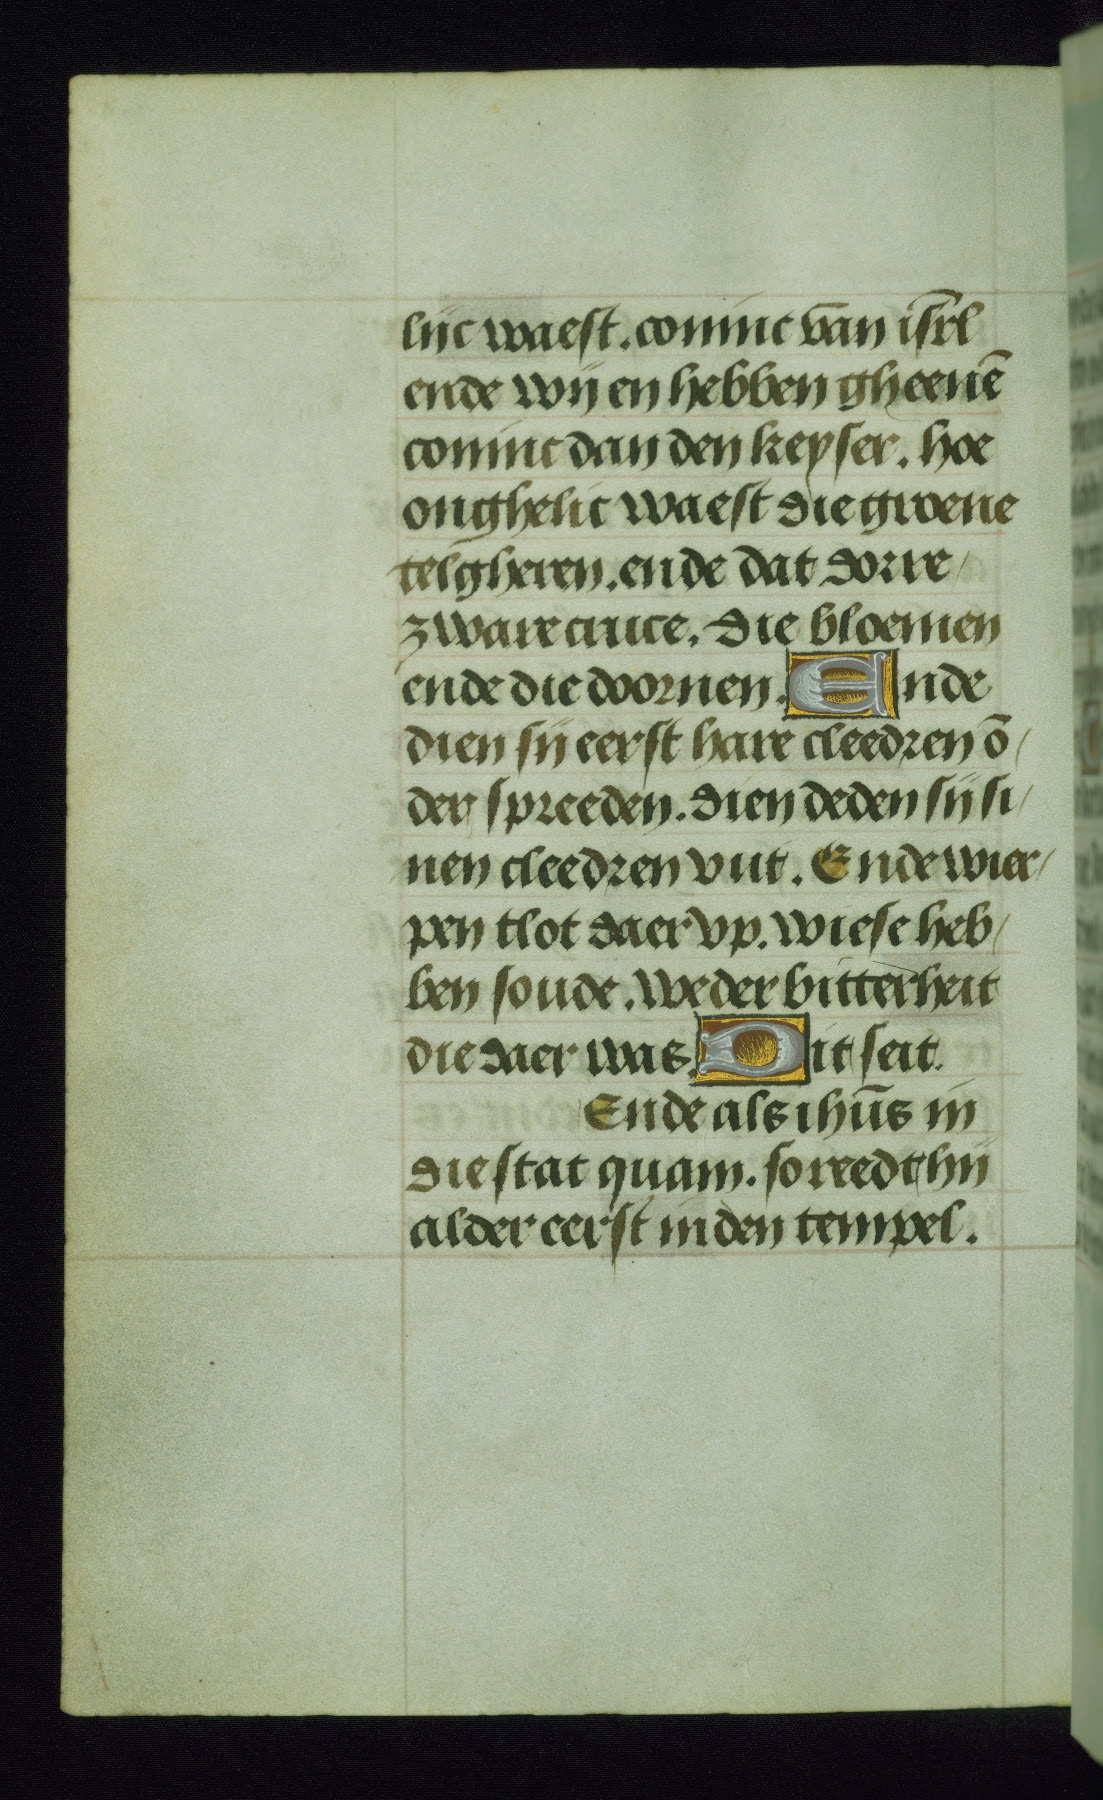 liic waest. coninc van isr̄l
ende wij en hebben gheenē
coninc dan den keyser. hoe
onghelic waest die groene
telgheren. ende dat dorre/
zware cruce. Die bloemen
ende die doornen. Ende
dien sij eerst hare cleedren ō/
der spreeden. dien deden sij si/
nen cleedren vut. Ende wier/
pen tlot daer vp. wiese heb/
ben soude. weder bitterheit
die daer was. Dit seit.
Ende als ihūs in
die stat quam. so reedt hij
alder eerst in den tempel.